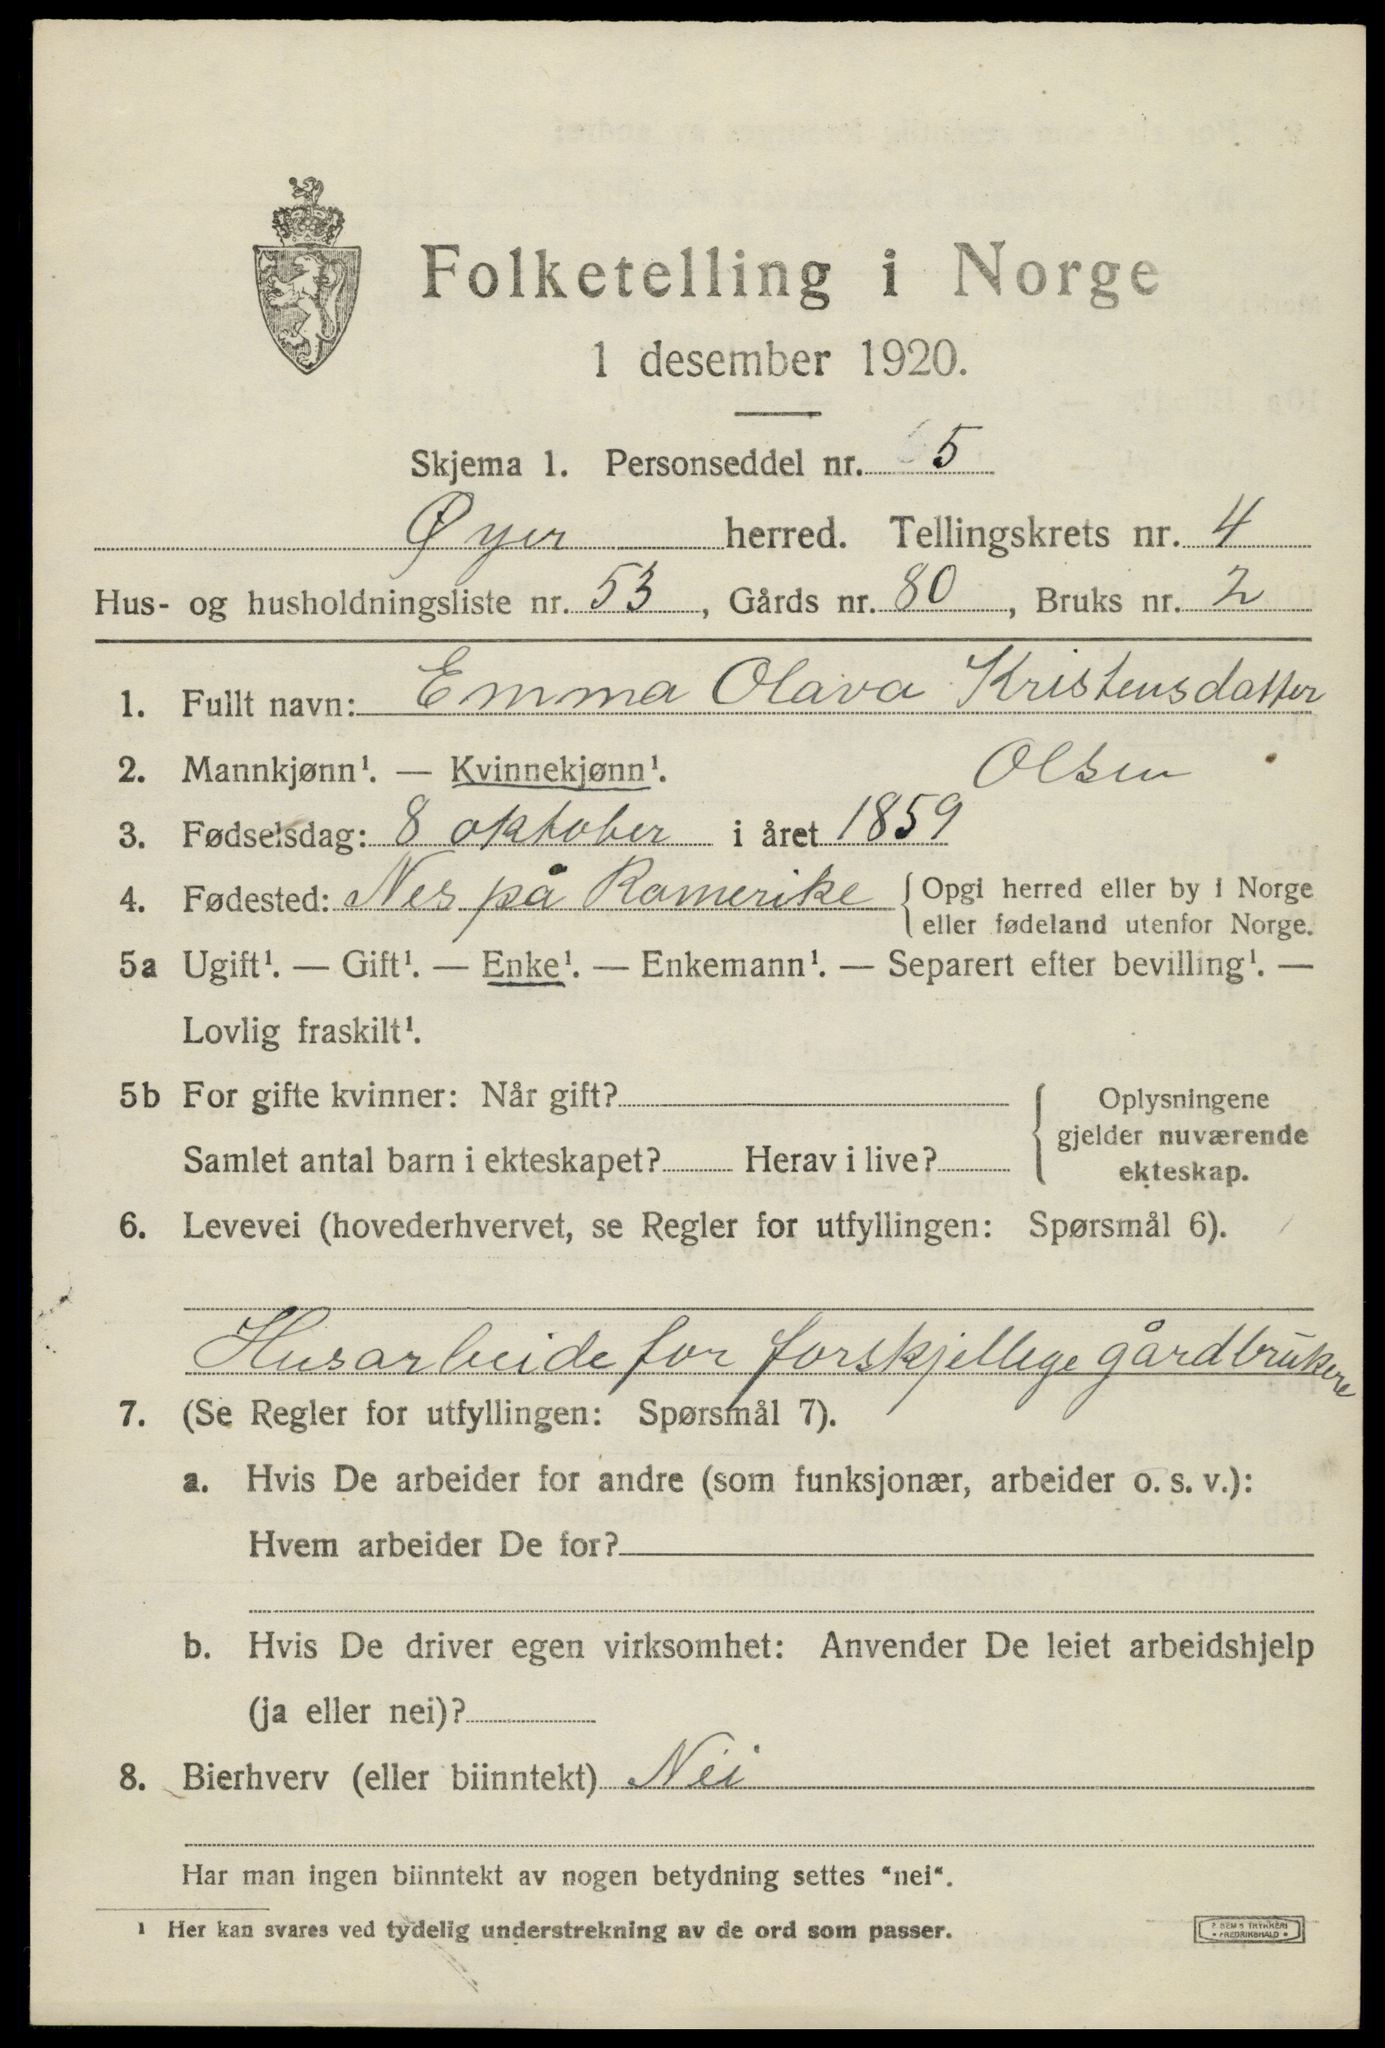 Folketelling i Norge
1 desember 1920.
Skjema 1. Personseddel nr. 5
Øyer herred. Tellingskrets nr. 4
Hus- og husholdningsliste nr. 53, Gårds nr. 80, Bruks nr. 2
1. Fullt navn: Emma Olava Kristensdatter
Olsen
2. Mannkjønn¹. — Kvinnekjønn¹.
3. Fødselsdag: 8 oktober i året 1859
4. Fødested: Nes på Romerike { Opgi herred eller by i Norge
eller fødeland utenfor Norge.
5a Ugift¹. — Gift¹. — Enke¹. — Enkemann¹. — Separert efter bevilling¹. —
Lovlig fraskilt¹.
5b For gifte kvinner: Når gift?
Samlet antal barn i ekteskapet? Herav i live?
Oplysningene
gjelder nuværende
ekteskap.
6. Levevei (hovederhvervet, se Regler for utfyllingen: Spørsmål 6).
Husarbeide for forskjellige gårdbrukere
7. (Se Regler for utfyllingen: Spørsmål 7).
a. Hvis De arbeider for andre (som funksjonær, arbeider o. s. v.):
Hvem arbeider De for?
b. Hvis De driver egen virksomhet: Anvender De leiet arbeidshjelp
(ja eller nei)?
8. Bierhverv (eller biinntekt) Nei
Har man ingen biinntekt av nogen betydning settes "nei".
¹ Her kan svares ved tydelig understrekning av de ord som passer.
TRYKKERI
FREDRIKSHALD